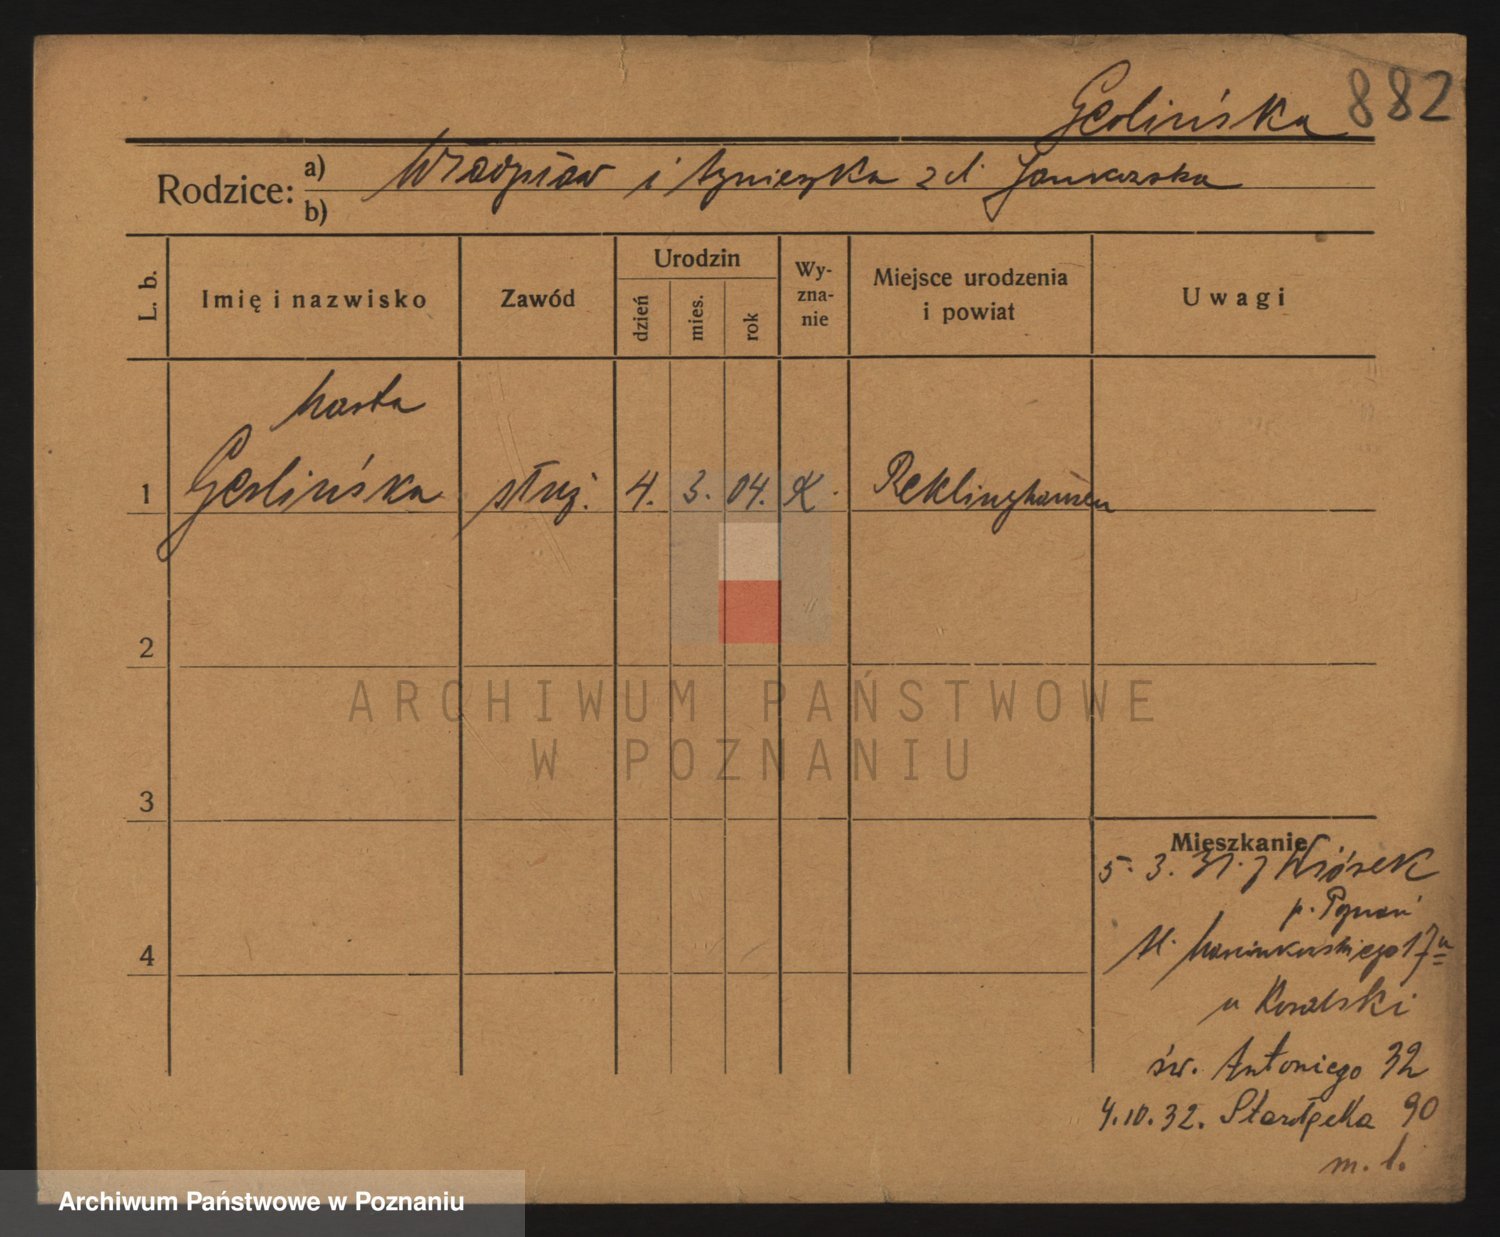 882
Gęślińska
Rodzice: a) Władysław i Agnieszka z d. Jankowska
b)
L. b.
Imię i nazwisko
Zawód
Urodzin
dzień
mies.
rok
Wy-
zna-
nie
Miejsce urodzenia
i powiat
Uwagi
Marta
1 Gęślińska służ. 4. 3. 04. K. Reklinghausen
2
3
4
Mieszkanie
5. 3. 31. z Wiórek
p. Poznań
Ul. Marcinkowskiego 17
u Kowalski
św. Antoniego 32
4.10.32. Starołęcka 90
m. 1.
ARCHIWUM PAŃSTWOWE
W POZNANIU
Archiwum Państwowe w Poznaniu